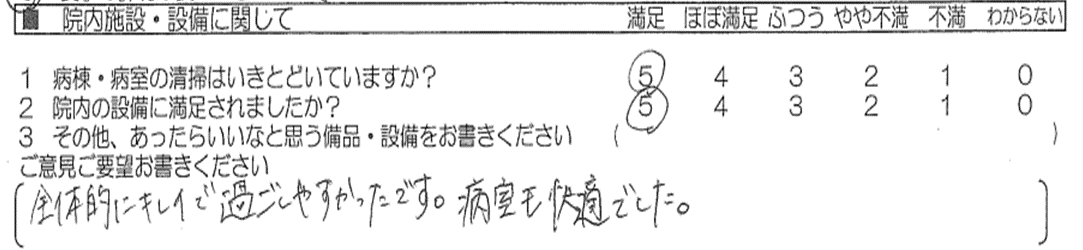 ■ 院内施設・設備に関して 満足 ほぼ満足 ふつう やや不満 不満 わからない
1 病棟・病室の清掃はいきとどいていますか? 5 4 3 2 1 0
2 院内の設備に満足されましたか? 5 4 3 2 1 0
3 その他、あったらいいなと思う備品・設備をお書きください ( )
ご意見ご要望お書きください
全体的にキレイで過ごしやすかったです。病室も快適でした。